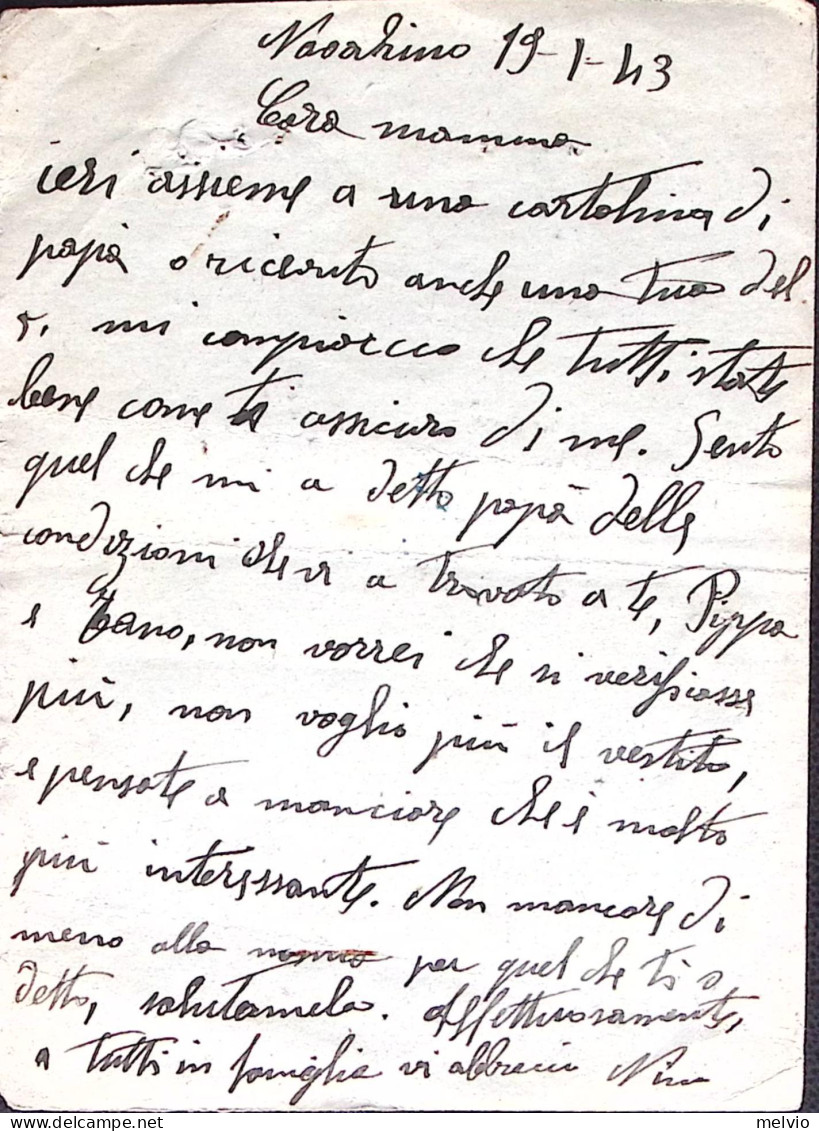 Navarino 19-1-43
Cara mamma
ieri assieme a una cartolina di
papà o ricevuto anche una tua del
5, mi compiaccio che tutti state
bene come ti assicuro di me. Sento
quel che mi a detto papà delle
condizioni che vi a trovato a te, Pippa
e Tano, non vorrei che si verificasse
più, non voglio più il vestito,
e pensate a manciare che è molto
più interessante. Non mancare di
meno alla nonna per quel che ti o
detto, salutamela. Affettuosamente,
a tutti in famiglia vi abbraccio Nino
melvio